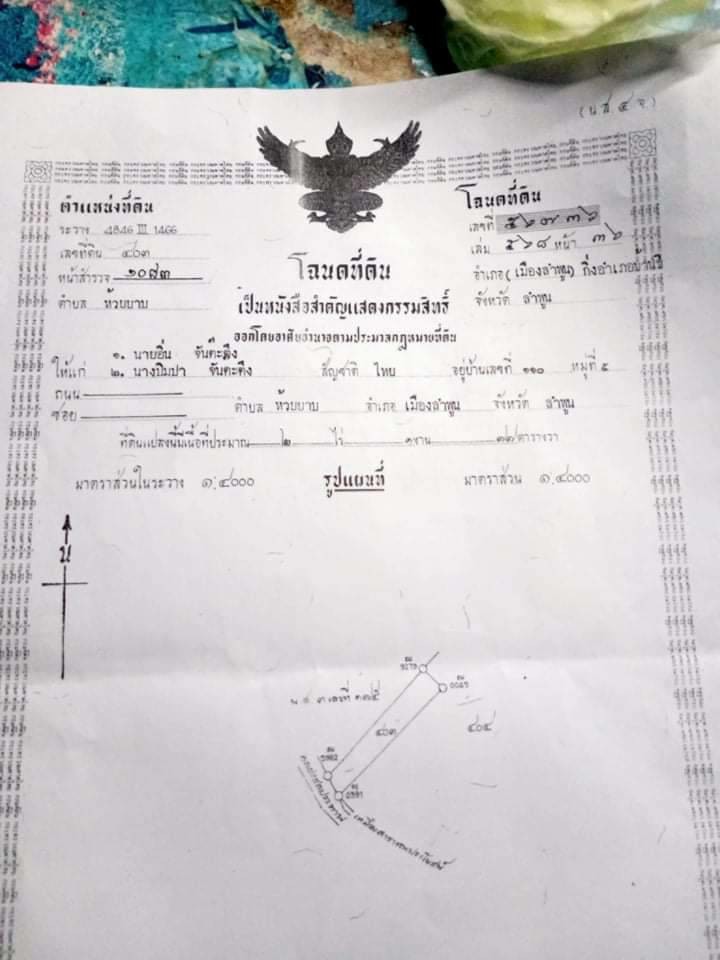 (น.ส. ๔ จ.)
ตำแหน่งที่ดิน
ระวาง 4846 III 1466
เลขที่ดิน ๔๐๓
หน้าสำรวจ ๑๐๘๓
ตำบล ห้วยยาบ
โฉนดที่ดิน
เลขที่ ๕๖๗๓๖
เล่ม ๕๖๘ หน้า ๓๖
อำเภอ (เมืองลำพูน) กิ่งอำเภอบ้านธิ
จังหวัด ลำพูน
โฉนดที่ดิน
เป็นหนังสือสำคัญแสดงกรรมสิทธิ์
ออกโดยอาศัยอำนาจตามประมวลกฎหมายที่ดิน
๑. นายอิ่น จันต๊ะดึง
ให้แก่ ๒. นางปิมปา จันต๊ะดึง สัญชาติ ไทย อยู่บ้านเลขที่ ๑๑๐ หมู่ที่ ๕
ถนน
ซอย ตำบล ห้วยยาบ อำเภอ เมืองลำพูน จังหวัด ลำพูน
ที่ดินแปลงนี้มีเนื้อที่ประมาณ ๒ ไร่ ๑ งาน ตารางวา
มาตราส่วนในระวาง ๑:๔๐๐๐ รูปแผนที่ มาตราส่วน ๑:๔๐๐๐
น
น.ส. ๓ เลขที่ ๓๗๕
๔๐๓
๔๐๔
คลองชลประทาน
เหมืองสาธารณประโยชน์